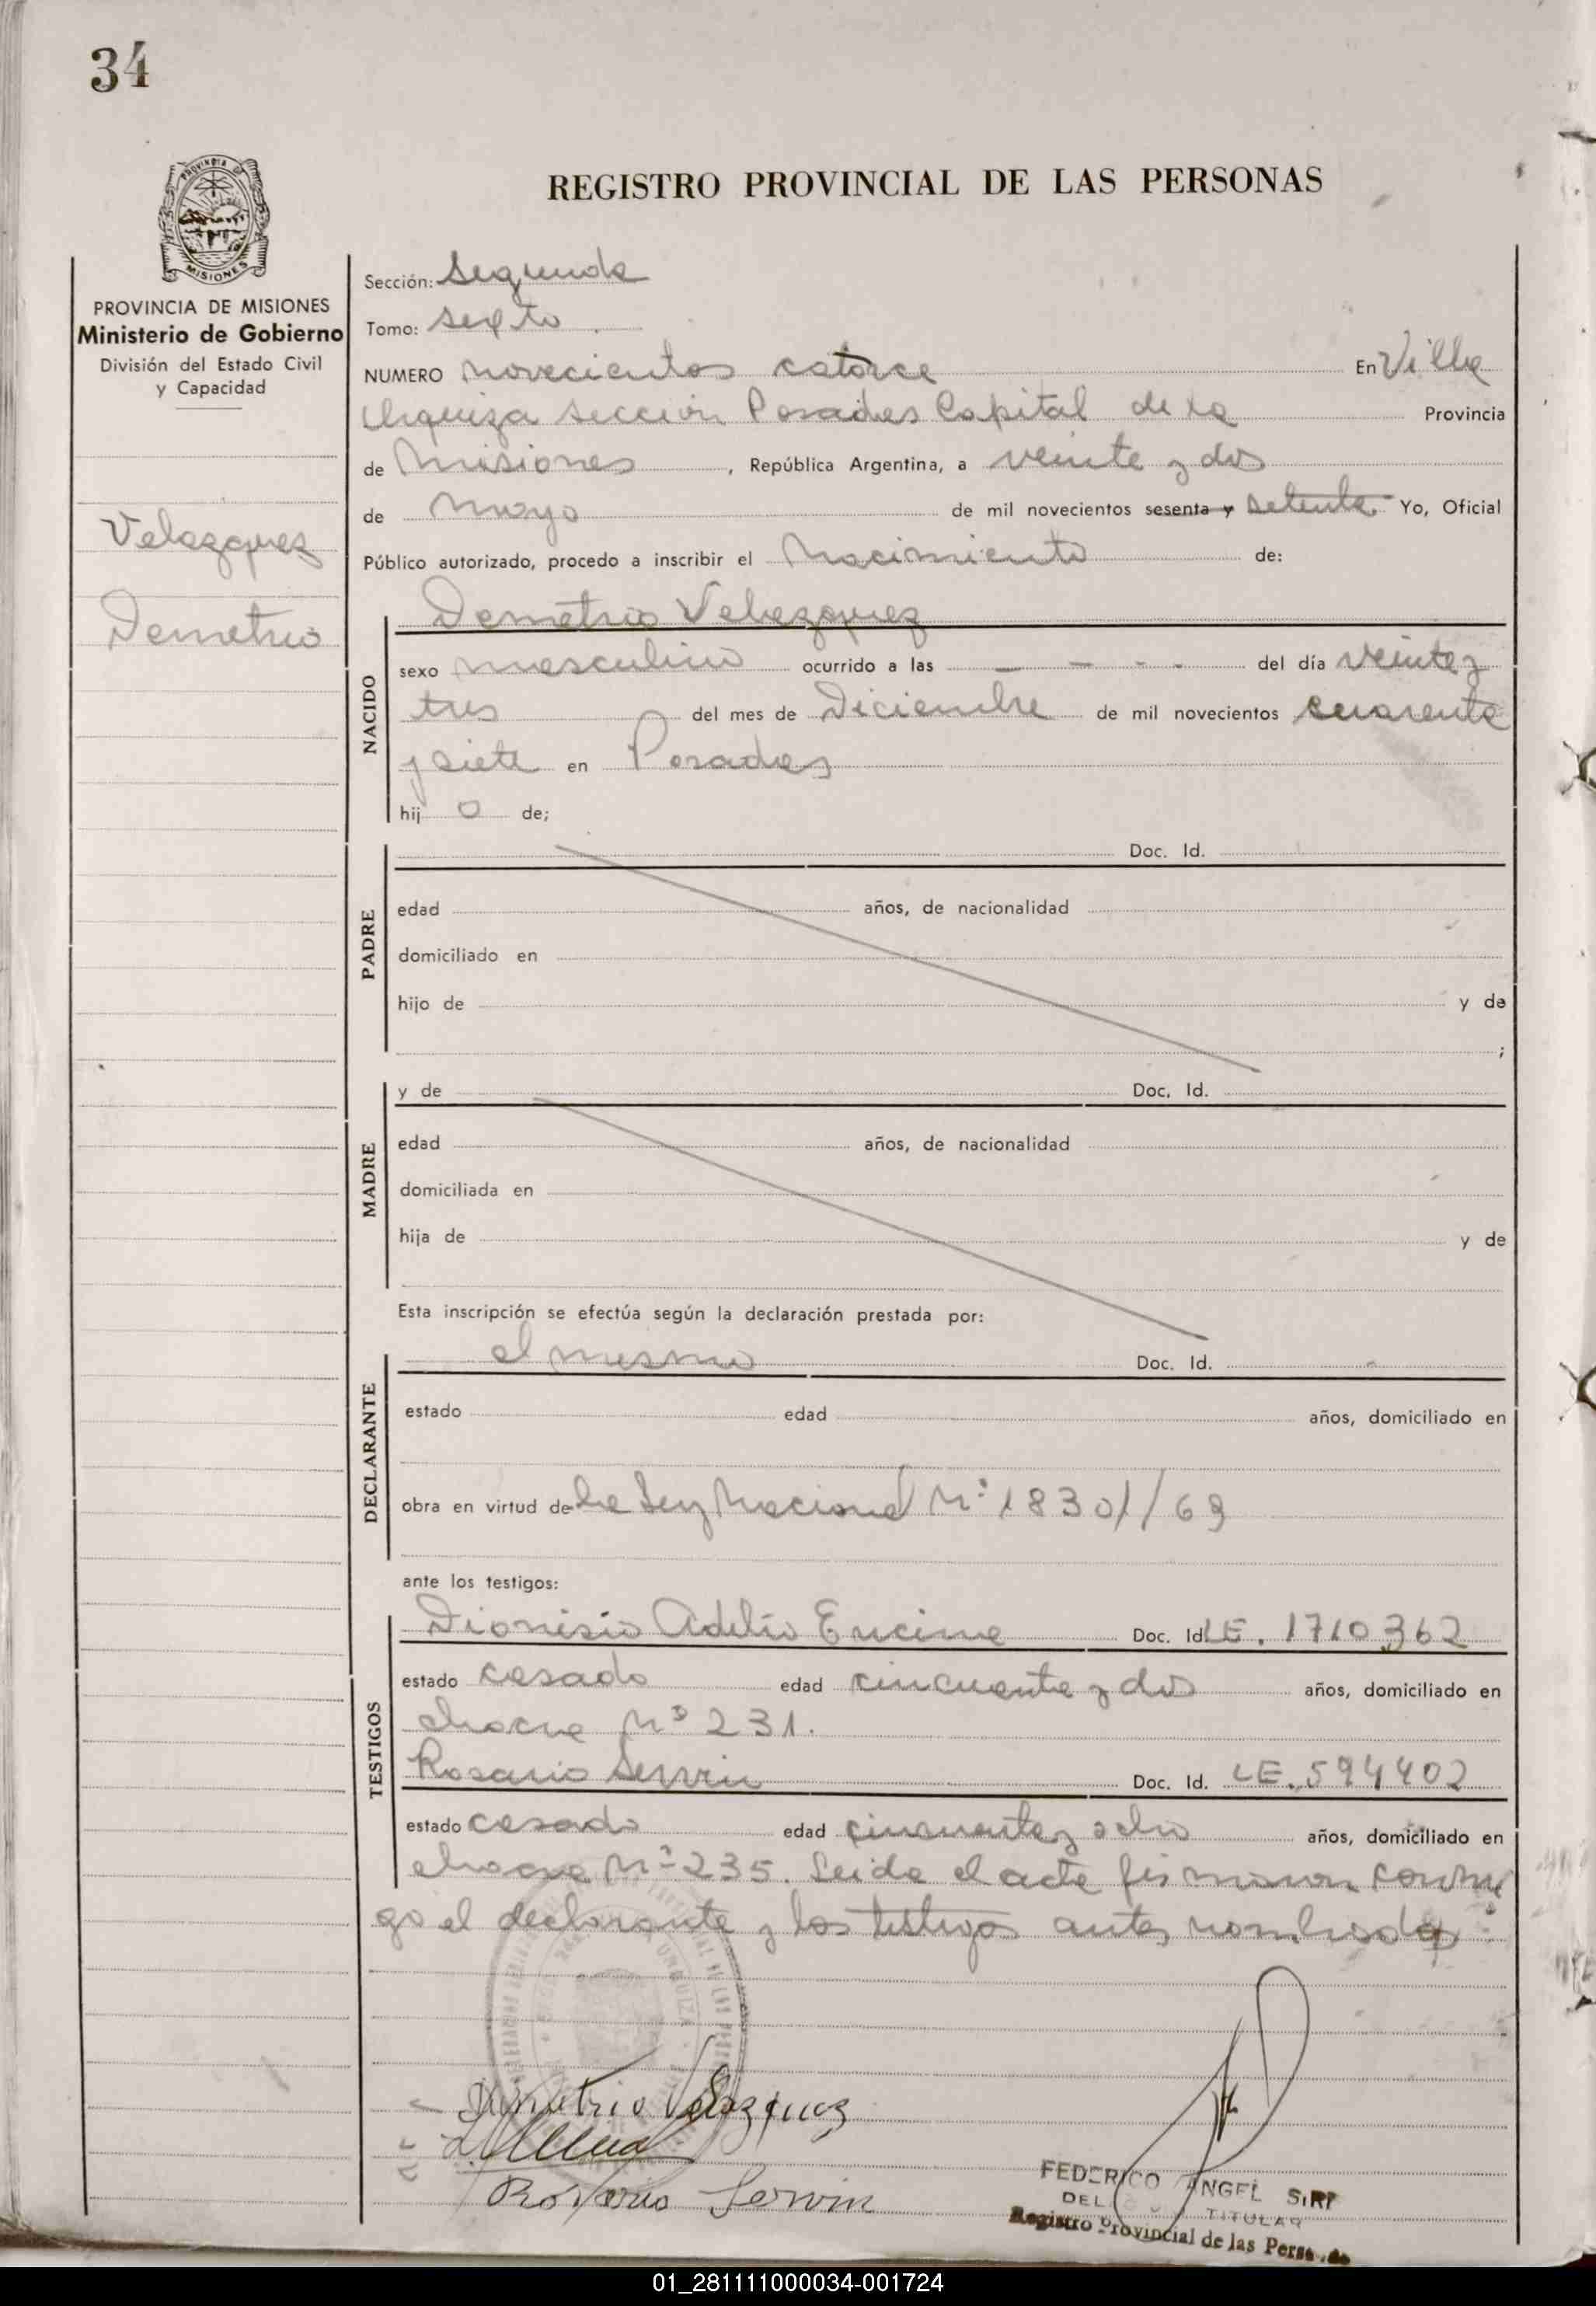 34
PROVINCIA DE
MISIONES
REGISTRO PROVINCIAL DE LAS PERSONAS
PROVINCIA DE MISIONES
Ministerio de Gobierno
División del Estado Civil
y Capacidad
Velazquez
Demetrio
Sección: Segunda
Tomo: sexto
NUMERO novecientos catorce En Villa
Urquiza sección Posadas Capital de la Provincia
de Misiones, República Argentina, a veinte y dos
de Mayo de mil novecientos sesenta y setenta Yo, Oficial
Público autorizado, procedo a inscribir el Nacimiento de:
NACIDO
Demetrio Velazquez
sexo masculino ocurrido a las - - - - del día veinte y
tres del mes de Diciembre de mil novecientos cuarenta
y siete en Posadas
hij o de;
PADRE
Doc. Id.
edad años, de nacionalidad
domiciliado en
hijo de y de
;
MADRE
y de Doc. Id.
edad años, de nacionalidad
domiciliada en
hija de y de
Esta inscripción se efectúa según la declaración prestada por:
DECLARANTE
el mismo Doc. Id.
estado edad años, domiciliado en
obra en virtud de la Ley Nacional Nº 18301/69
ante los testigos:
TESTIGOS
Dionisio Adelio Encina Doc. Id. LE. 1710362
estado casado edad cincuenta y dos años, domiciliado en
chacra Nº 231.
Rosario Servin Doc. Id. LE. 594402
estado casado edad cincuenta y ocho años, domiciliado en
chacra Nº 235. Leida el acta firmaron conmi
go el declarante y los testigos antes nombrados
Demetrio Velazquez
Rosario Servin
FEDERICO ANGEL
DEL TITULAR
Registro Provincial de las Personas
01_281111000034-001724